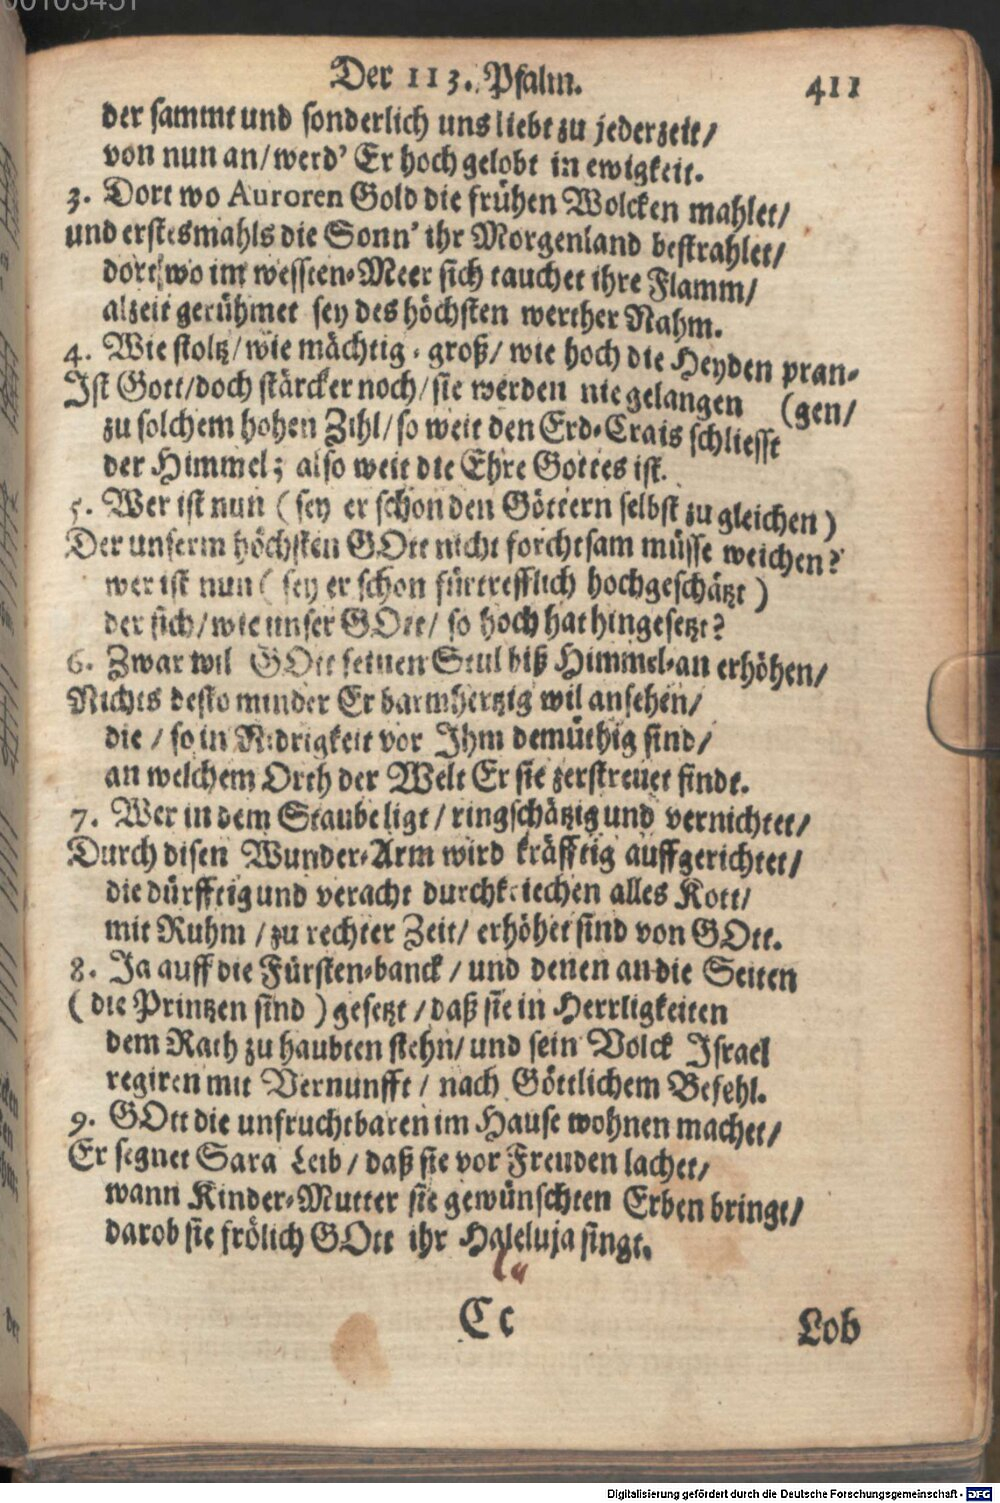 00103451
Der 113. Psalm. 411
der sammt und sonderlich uns liebt zu jederzeit/
von nun an/ werd' Er hoch gelobt in ewigkeit.
3. Dort wo Auroren Gold die frühen Wolcken mahlet/
und erstesmahls die Sonn' ihr Morgenland bestrahlet/
dort wo im wessten-Meer sich tauchet ihre Flamm/
alzeit gerühmet sey des höchsten werther Nahm.
4. Wie stoltz/ wie mächtig-groß/ wie hoch die Heyden pran-
Ist Gott/ doch stärcker noch/ sie werden nie gelangen (gen/
zu solchem hohen Zihl/ so weit den Erd-Crais schliesst
der Himmel; also weit die Ehre Gottes ist.
5. Wer ist nun (sey er schon den Göttern selbst zu gleichen)
Der unserm höchsten GOtt nicht forchtsam müsse weichen?
wer ist nun (sey er schon fürtrefflich hochgeschätzt)
der sich/ wie unser GOtt/ so hoch hat hingesetzt?
6. Zwar wil GOtt seinen Stul biß Himmel-an erhöhen/
Nichts desto minder Er barmhertzig wil ansehen/
die/ so in Nidrigkeit vor Ihm demüthig sind/
an welchem Orth der Welt Er sie zerstreuet findt.
7. Wer in dem Staube ligt/ ringschätzig und vernichtet/
Durch disen Wunder-Arm wird kräfftig auffgerichtet/
die dürfftig und veracht durchkriechen alles Kott/
mit Ruhm/ zu rechter Zeit/ erhöhet sind von GOtt.
8. Ja auff die Fürsten-banck/ und denen an die Seiten
(die Printzen sind) gesetzt/ daß sie in Herrligkeiten
dem Rath zu haubten stehn/ und sein Volck Israel
regiren mit Vernunfft/ nach Göttlichem Befehl.
9. GOtt die unfruchtbaren im Hause wohnen machet/
Er segnet Sara Leib/ daß sie vor Freuden lachet/
wann Kinder-Mutter sie gewünschten Erben bringt/
darob sie frölich GOtt ihr Haleluja singt.
Cc Lob
Digitalisierung gefördert durch die Deutsche Forschungsgemeinschaft - DFG